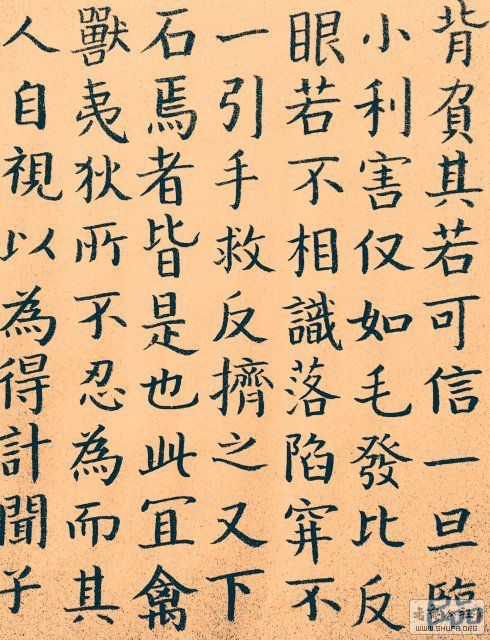 背負其若可信一旦臨
小利害仅如毛發比反
眼若不相識落陷穽不
一引手救反擠之又下
石焉者皆是也此冝禽
獸夷狄所不忍為而其
人自視以為得計聞子
WWW.SHUFA.ORG